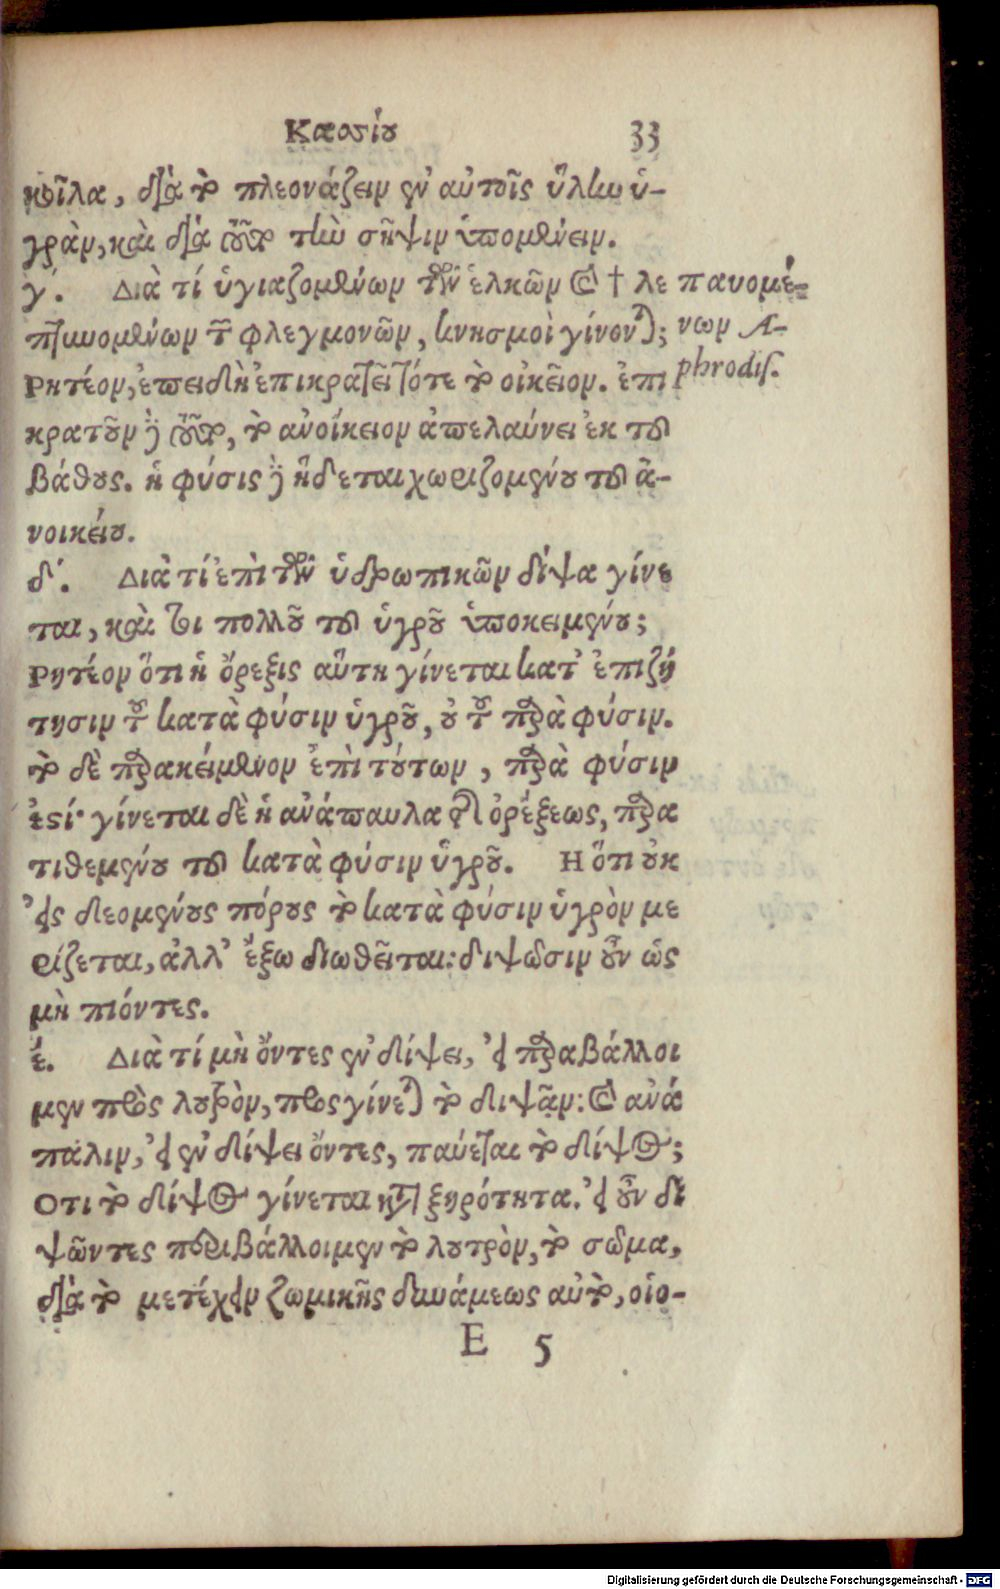 Κασσίου 33
κοῖλα, διὰ τὸ πλεονάζειν ἐν αὐτοῖς ὕλην ὑ-
γρὰν, καὶ διὰ τοῦτο τὴν σῆψιν ὑπομένειν.
γ΄. Διὰ τί ὑγιαζομένων τῶν ἑλκῶν καὶ † λε
πτυνομένων τῶν φλεγμονῶν, κνησμοὶ γίνονται;
Ρητέον, ἐπειδὴ ἐπικρατεῖ τότε τὸ οἰκεῖον. ἐπι
κρατοῦν δὲ τοῦτο, τὸ ἀνοίκειον ἀπελαύνει ἐκ τοῦ
βάθους. ἡ φύσις δὲ ἥδεται χωριζομένου τοῦ ἀ-
νοικείου.
παυομέ-
νων A-
phrodis.
δ΄. Διὰ τί ἐπὶ τῶν ὑδρωπικῶν δίψα γίνε
ται, καὶ ἔτι πολλοῦ τοῦ ὑγροῦ ὑποκειμένου;
Ρητέον ὅτι ἡ ὄρεξις αὕτη γίνεται κατ' ἐπιζή
τησιν τοῦ κατὰ φύσιν ὑγροῦ, οὐ τοῦ παρὰ φύσιν.
τὸ δὲ παρακείμενον ἐπὶ τούτων, παρὰ φύσιν
ἐστί· γίνεται δὲ ἡ ἀνάπαυλα τῆς ὀρέξεως, παρα
τιθεμένου τοῦ κατὰ φύσιν ὑγροῦ. Η ὅτι οὐκ
εἰς δεομένους πόρους τὸ κατὰ φύσιν ὑγρὸν με
ρίζεται, ἀλλ' ἔξω διωθεῖται: διψῶσιν οὖν ὡς
μὴ πιόντες.
έ. Διὰ τί μὴ ὄντες ἐν δίψει, εἰ παραβάλλοι
μεν πρὸς λουτρὸν, πρὸς γίνεται τὸ διψᾷν: καὶ ἀνά
παλιν, εἰ ἐν δίψει ὄντες, παύεται τὸ δίψος;
Οτι τὸ δίψος γίνεται κατὰ ξηρότητα. εἰ οὖν δι
ψῶντες περιβάλλοιμεν τὸ λουτρὸν, τὸ σῶμα,
διὰ τὸ μετέχειν ζωμικῆς δυνάμεως αὐτὸ, οἱο-
E 5
Digitalisierung gefördert durch die Deutsche Forschungsgemeinschaft - DFG